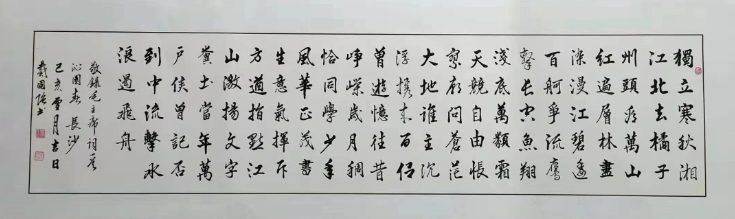 獨立寒秋湘
江北去橘子
州頭看萬山
紅遍層林盡
染漫江碧透
百舸爭流鷹
擊長空魚翔
淺底萬類霜
天競自由悵
寥廓問蒼茫
大地誰主沉
浮攜來百侶
曾遊憶往昔
崢嶸歲月稠
恰同學少年
風華正茂書
生意氣揮斥
方遒指點江
山激揚文字
糞土當年萬
戶侯曾記否
到中流擊水
浪遏飛舟
敬錄毛主席詞
沁園春長沙
己亥月吉日
戴國書